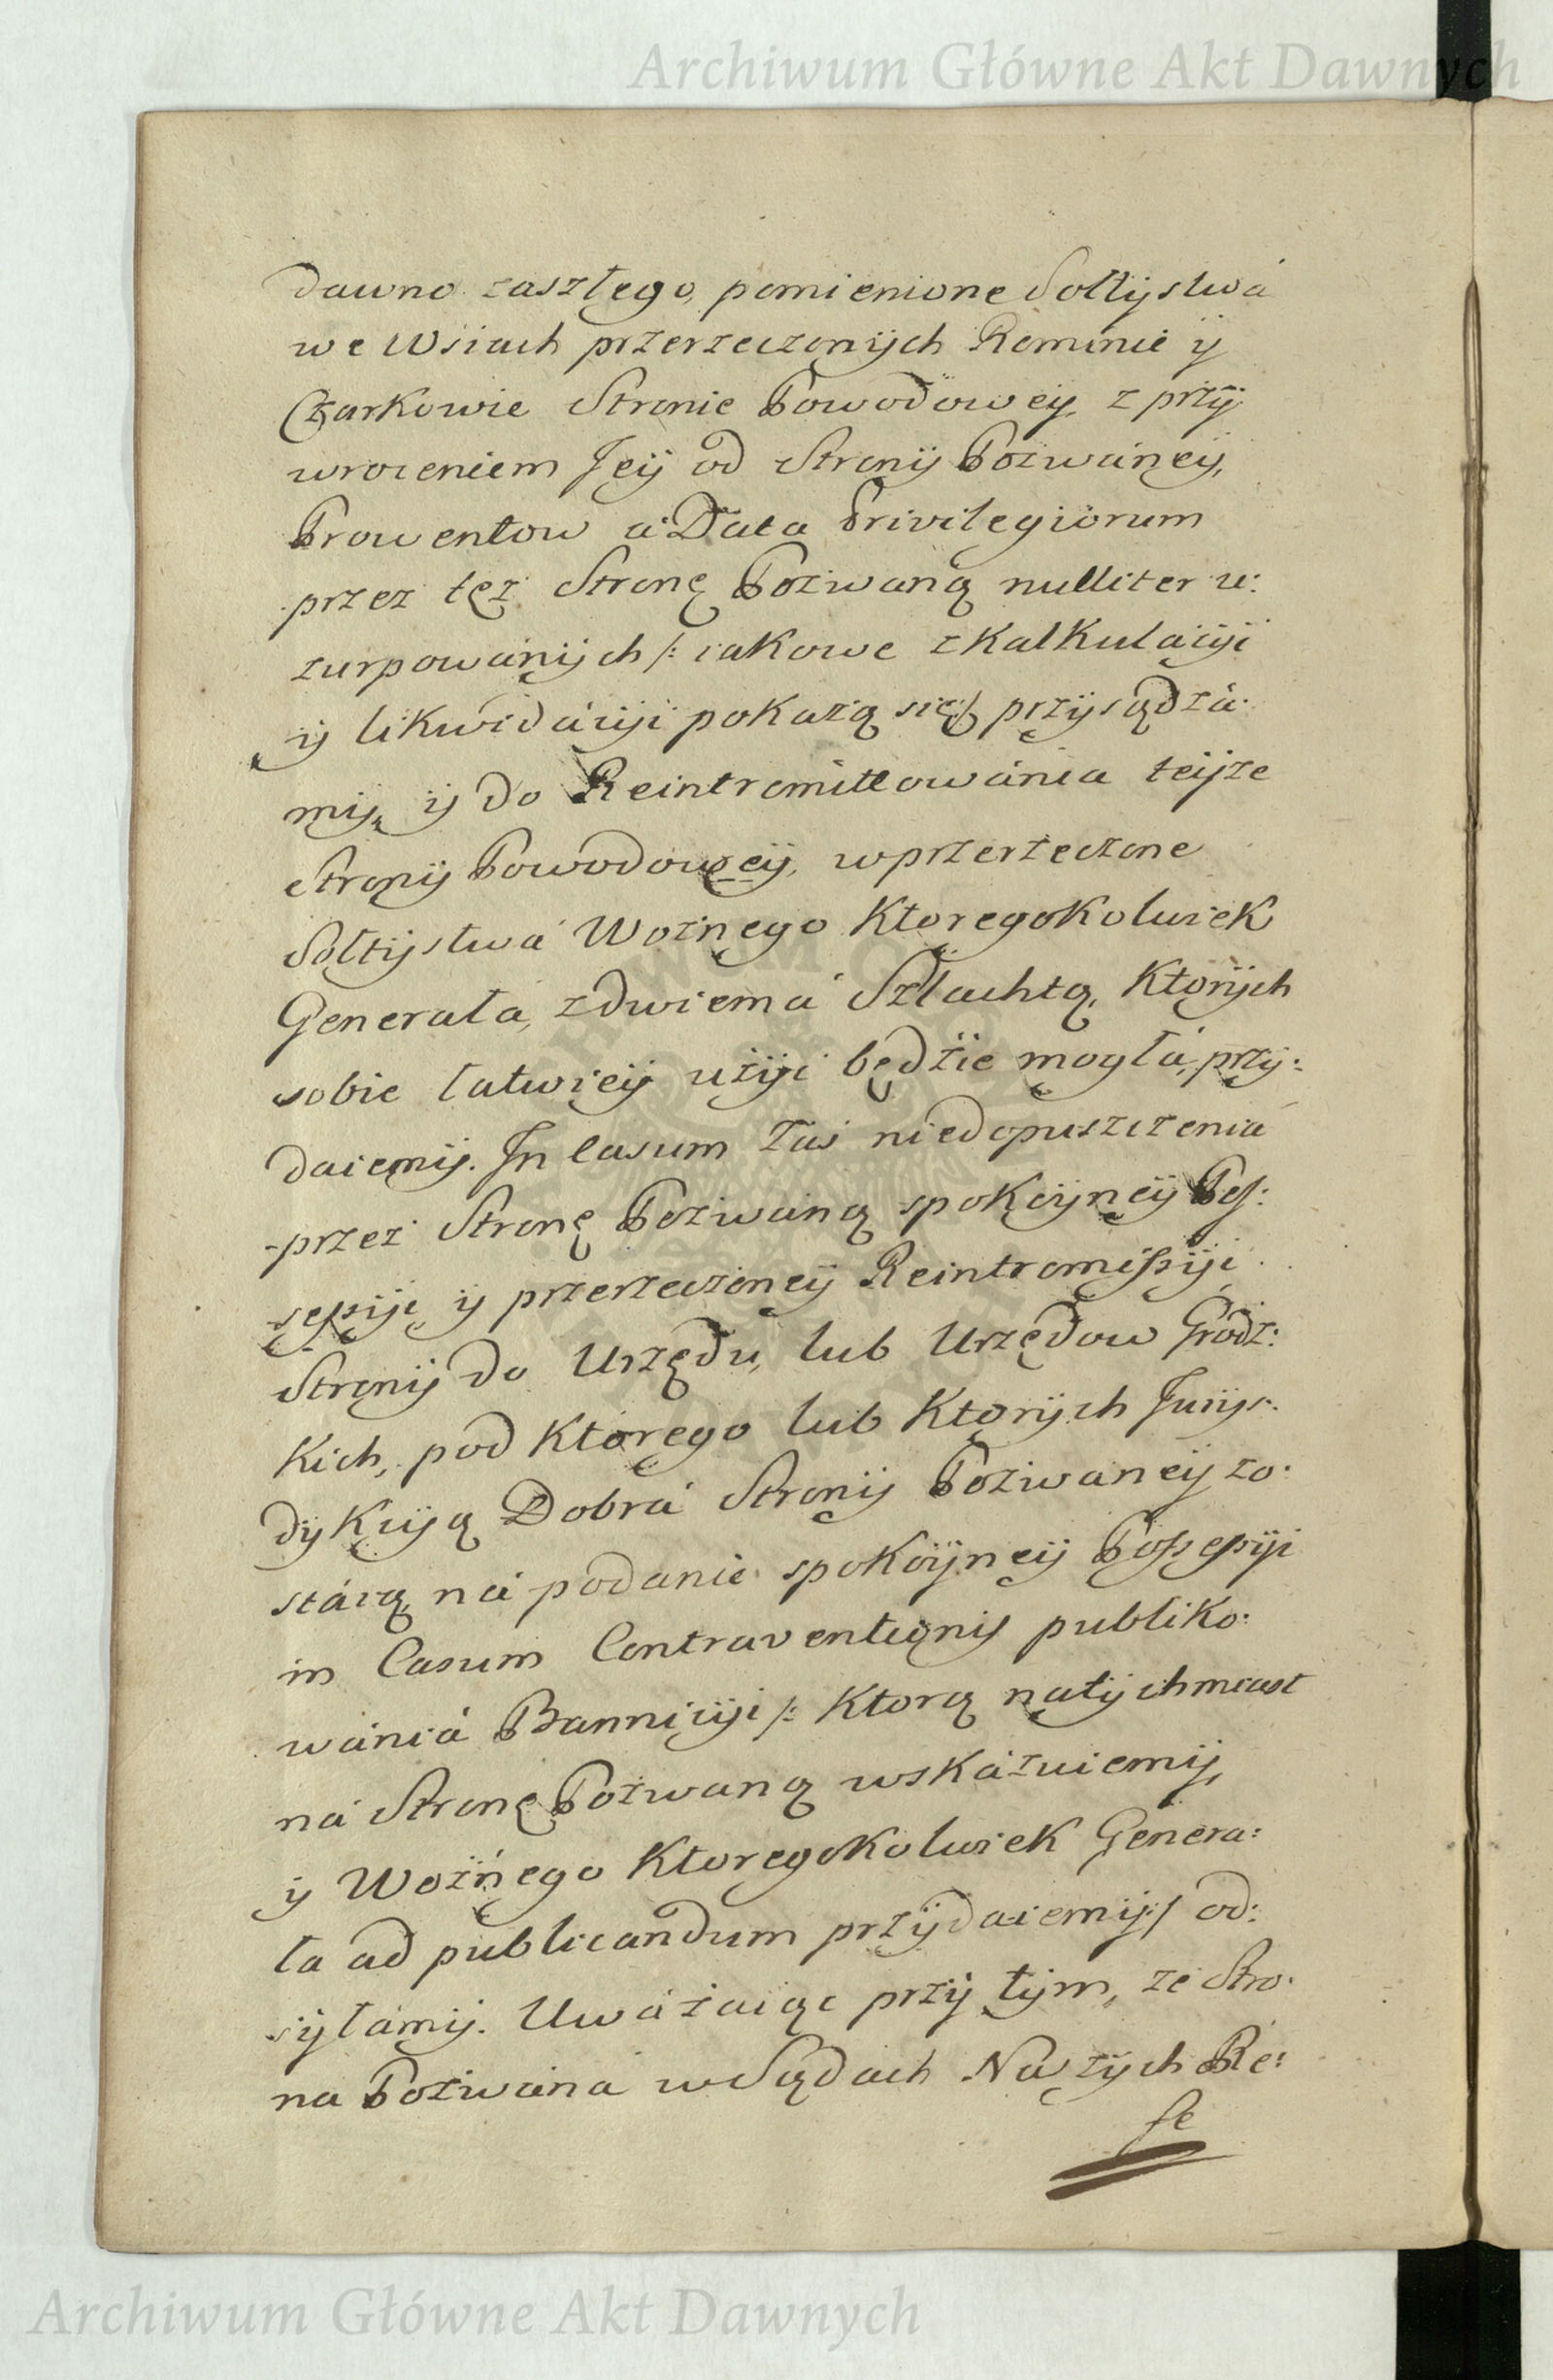 Archiwum Główne Akt Dawnych
dawno zaszłego, pomienione Sołtystwá
we Wsiach przerzeczonych Rominie y
Czarkowie Stronie Powodowey, z przy:
wroceniem Jey od Strony Pozwáney,
Prowentow á Data Privilegiorum
przez tęż Stronę Pozwaną nulliter u:
zurpowánych /: iakowe z Kalkulácyi
y likwidácyi pokażą się :/ przysądzá:
my, y do Reintromittowánia teyże
Strony Powodowey, w przerzeczone
Sołtystwá Woźnego Ktoregokolwiek
Generała, z dwiemá Szlachtą, Ktorych
sobie łatwiey użyć będzie mogłá, przy:
daiemy. In Casum zaś niedopuszczenia
przez Stronę Pozwáną spokoyney Pos:
sessyi y przerzeczoney Reintromissyi
Strony do Urzędu, lub Urzędow Grodz:
kich, pod Ktorego lub Ktorych Jurys:
dykcyą Dobrá Strony Pozwaney zo:
stáią, ná podanie spokoyney Possessyi
in Casum Contraventionis publiko:
wániá Bannicyi /: Ktorą natychmiast
ná Stronę Pozwaną wskázuiemy,
y Woźnego Ktoregokolwiek Genera:
ła ad publicandum przydaiemy :/ od:
syłamy. Uważaiąc przy tym, że Stro:
na Pozwána w Sądach Naszych Re:
fe
Archiwum Główne Akt Dawnych